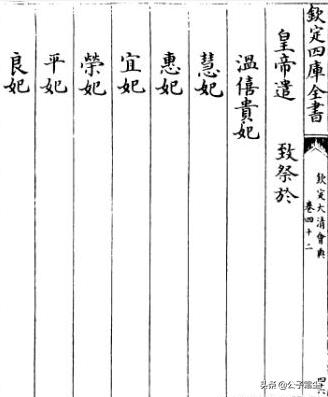 欽定四庫全書
欽定大清會典
卷四十二
皇帝遣 致祭於
溫僖貴妃
慧妃
惠妃
宜妃
榮妃
平妃
良妃
头条 @公子霄尘